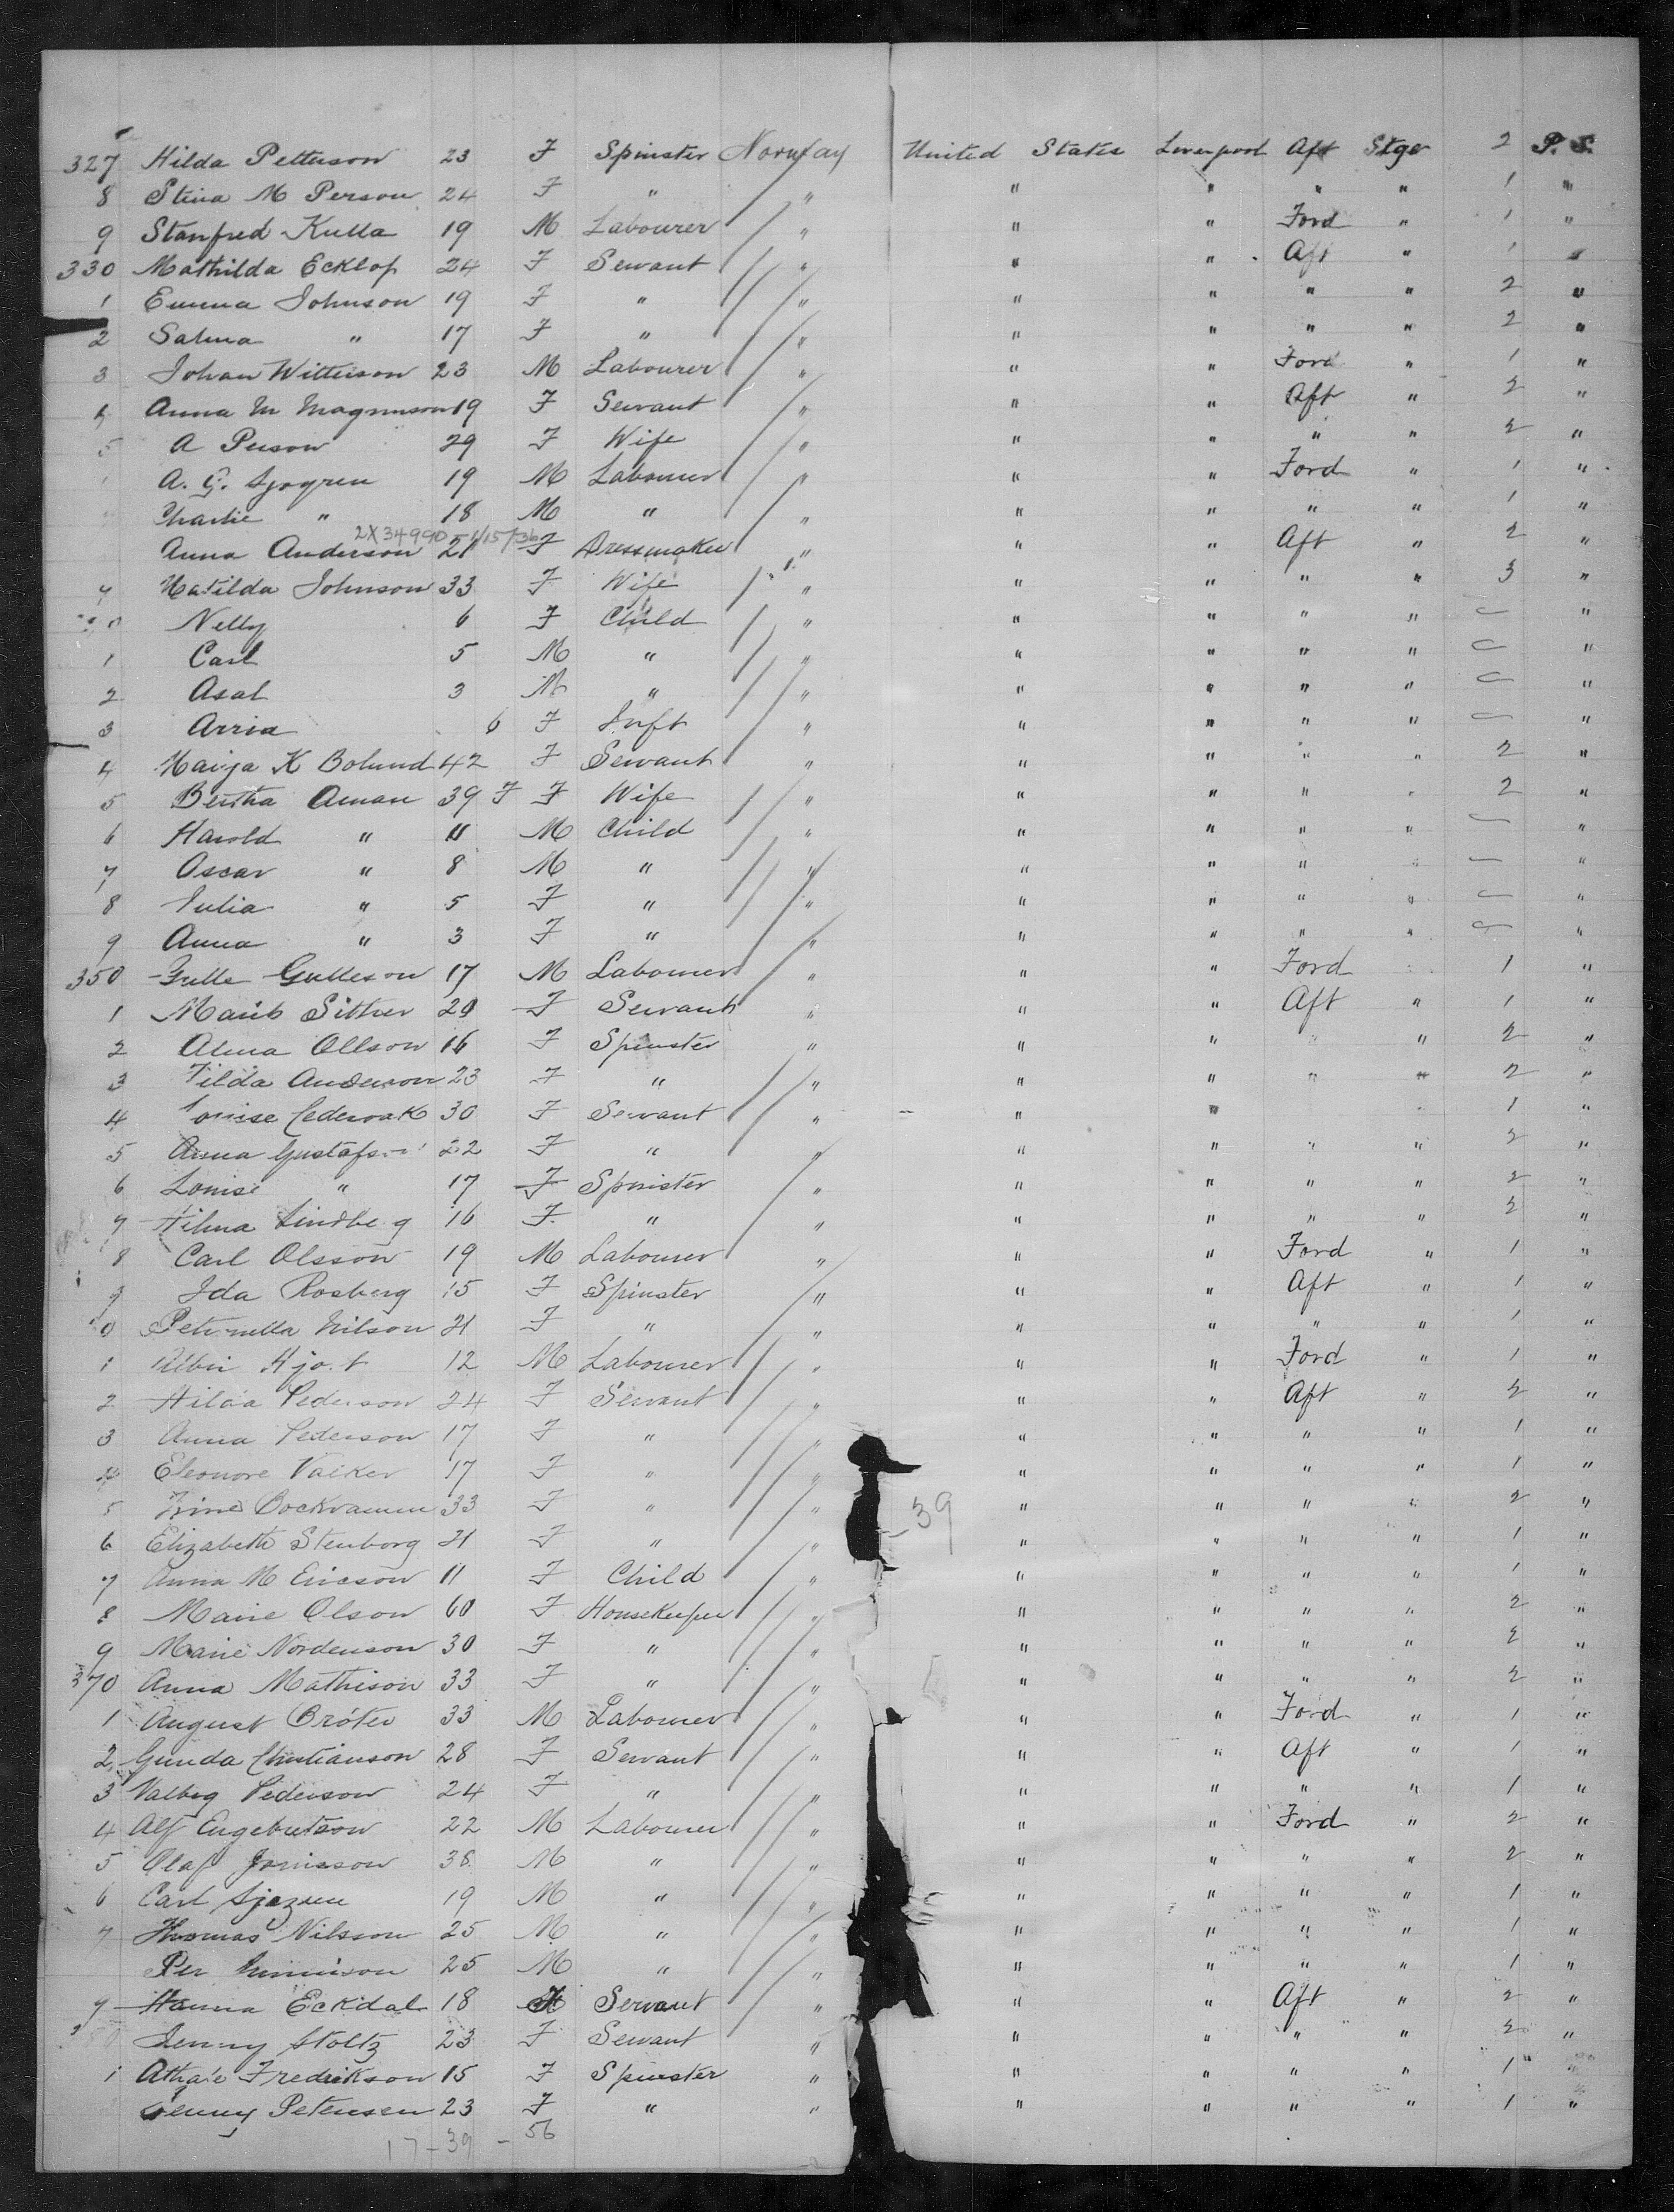 327 Hilda Petterson 23 F Spinster Norway United States Liverpool Aft Stge 2 P. S.
8 Stina M Person 24 F " " " " " " 1 "
9 Stanfred Kulla 19 M Labourer " " " Ford " 1 "
330 Mathilda Ecklof 24 F Servant " " " Aft " 1 "
1 Emma Johnson 19 F " " " " " " 2 "
2 Salma " 17 F " " " " " " 2 "
3 Johan Witterson 23 M Labourer " " " Ford " 1 "
4 Anna M Magnuson 19 F Servant " " " Aft " 2 "
5 A Person 29 F Wife " " " " " 2 "
A. G. Sjogren 19 M Labourer " " " Ford " 1 "
Charlie " 18 M " " " " " " 1 "
2X34990 - 1/15/36
Anna Anderson 21 F Dressmaker " " " Aft " 2 "
Matilda Johnson 33 F Wife " " " " " 3 "
Nelly 6 F Child " " " " " "
1 Carl 5 M " " " " " " "
2 Axal 3 M " " " " " " "
3 Arria 6 F Inft " " " " " "
4 Maija K Bolund 42 F Servant " " " " " 2 "
5 Bertha Aman 39 F F Wife " " " " " 2 "
6 Harold " 11 M Child " " " " " "
7 Oscar " 8 M " " " " " " "
8 Julia " 5 F " " " " " " "
9 Anna " 3 F " " " " " " "
350 Gulle Gulleson 17 M Labourer " " " Ford 1 "
1 Marib Sittrer 29 F Servant " " " Aft " 1 "
2 Alma Ollson 16 F Spinster " " " " " 2 "
3 Tilda Anderson 23 F " " " " " " 2 "
4 Louise 30 F Servant " " " 1 "
5 Anna Gustafson 22 F " " " " " " 2 "
6 Louise " 17 F Spinster " " " " " 2 "
7 Hilma Lindbeg 16 F " " " " " " 2 "
8 Carl Olsson 19 M Labourer " " " Ford " 1 "
9 Ida Rosberg 15 F Spinster " " " Aft " 1 "
0 Petrnella Nilson 21 F " " " " " " 1 "
1 Albin 12 M Labourer " " " Ford " 1 "
2 Hilda Pederson 24 F Servant " " " Aft " 2 "
3 Anna Pederson 17 F " " " " " " 1 "
4 Eleonore Valker 17 F " " " " " " 1 "
5 33 F " " " " " " 2 "
39
6 Elizabeth Stenborg 21 F " " " " " " 1 "
7 Anna M Ericson 11 F Child " " " " " 1 "
8 Marie Olson 60 F HouseKeeper " " " " " 2 "
9 Marie Nordenson 30 F " " " " " " 2 "
370 Anna Mathison 33 F " " " " " " 2 "
1 August Bróter 33 M Labourer " " " Ford " 1 "
2 Gunda Christianson 28 F Servant " " " Aft " 1 "
3 Valbeg Pederson 24 F " " " " " " 1 "
4 Alf Engebretson 22 M Labourer " " " Ford " 2 "
5 Olaf Jonisson 38 M " " " " " " 2 "
6 Carl 19 M " " " " " " 1 "
7 Thomas Nilsson 25 M " " " " " " 1 "
Per 25 M " " " " " " 1 "
9 Hanna Eckdal 18 F Servant " " " Aft " 2 "
Jenny Stoltz 23 F Servant " " " " " 2 "
1 Fredrikson 15 F Spinster " " " " " 1 "
Jenny Petersen 23 F " " " " " " 1 "
17 - 39 - 56